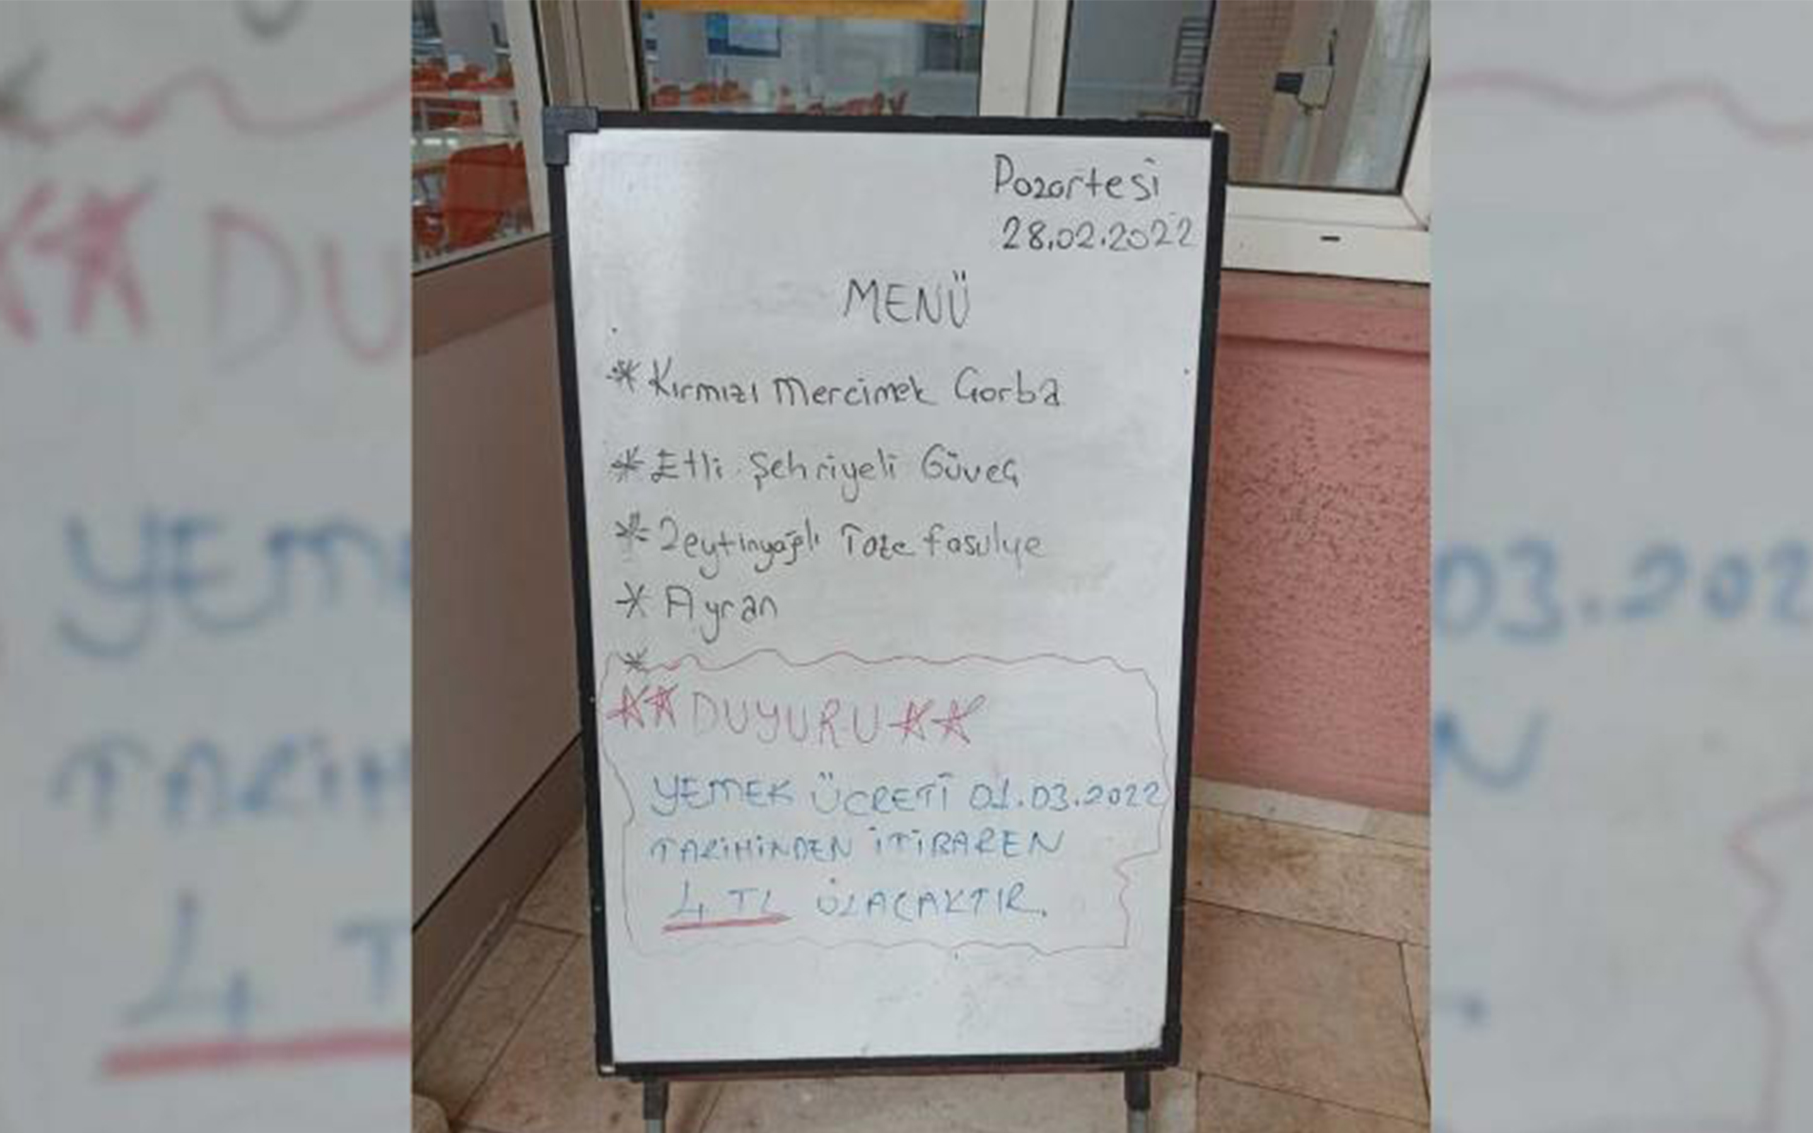 Pazartesi
28.02.2022
MENÜ
* Kırmızı Mercimek Çorba
* Etli Şehriyeli Güveç
* Zeytinyağlı Taze fasulye
* Ayran
*
** DUYURU **
YEMEK ÜCRETİ 01.03.2022
TARİHİNDEN İTİBAREN
4 TL OLACAKTIR.